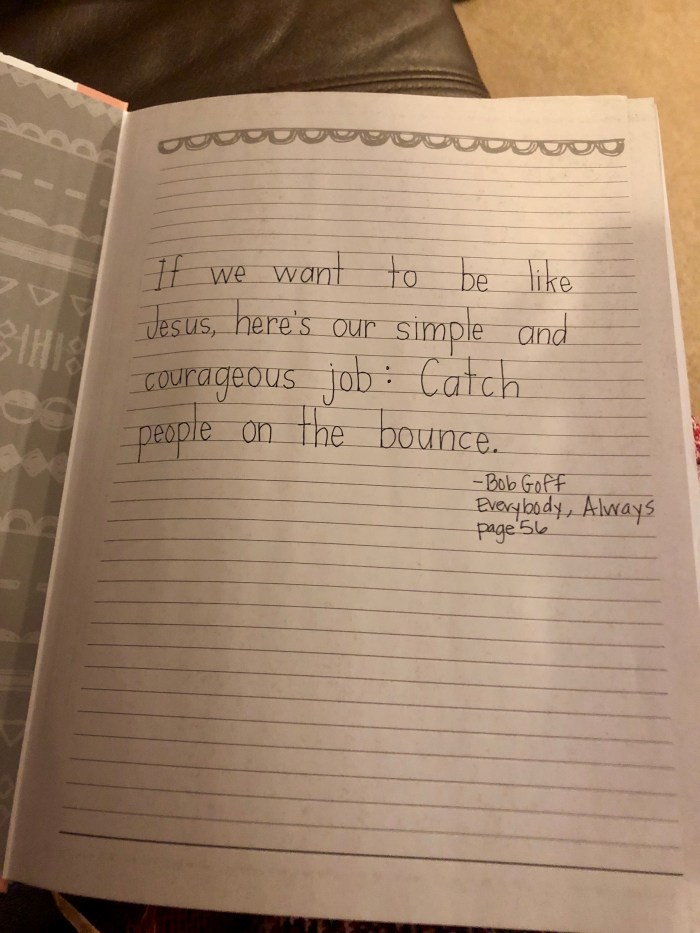 If we want to be like
Jesus, here's our simple and
courageous job: Catch
people on the bounce.
-Bob Goff
Everybody, Always
page 56